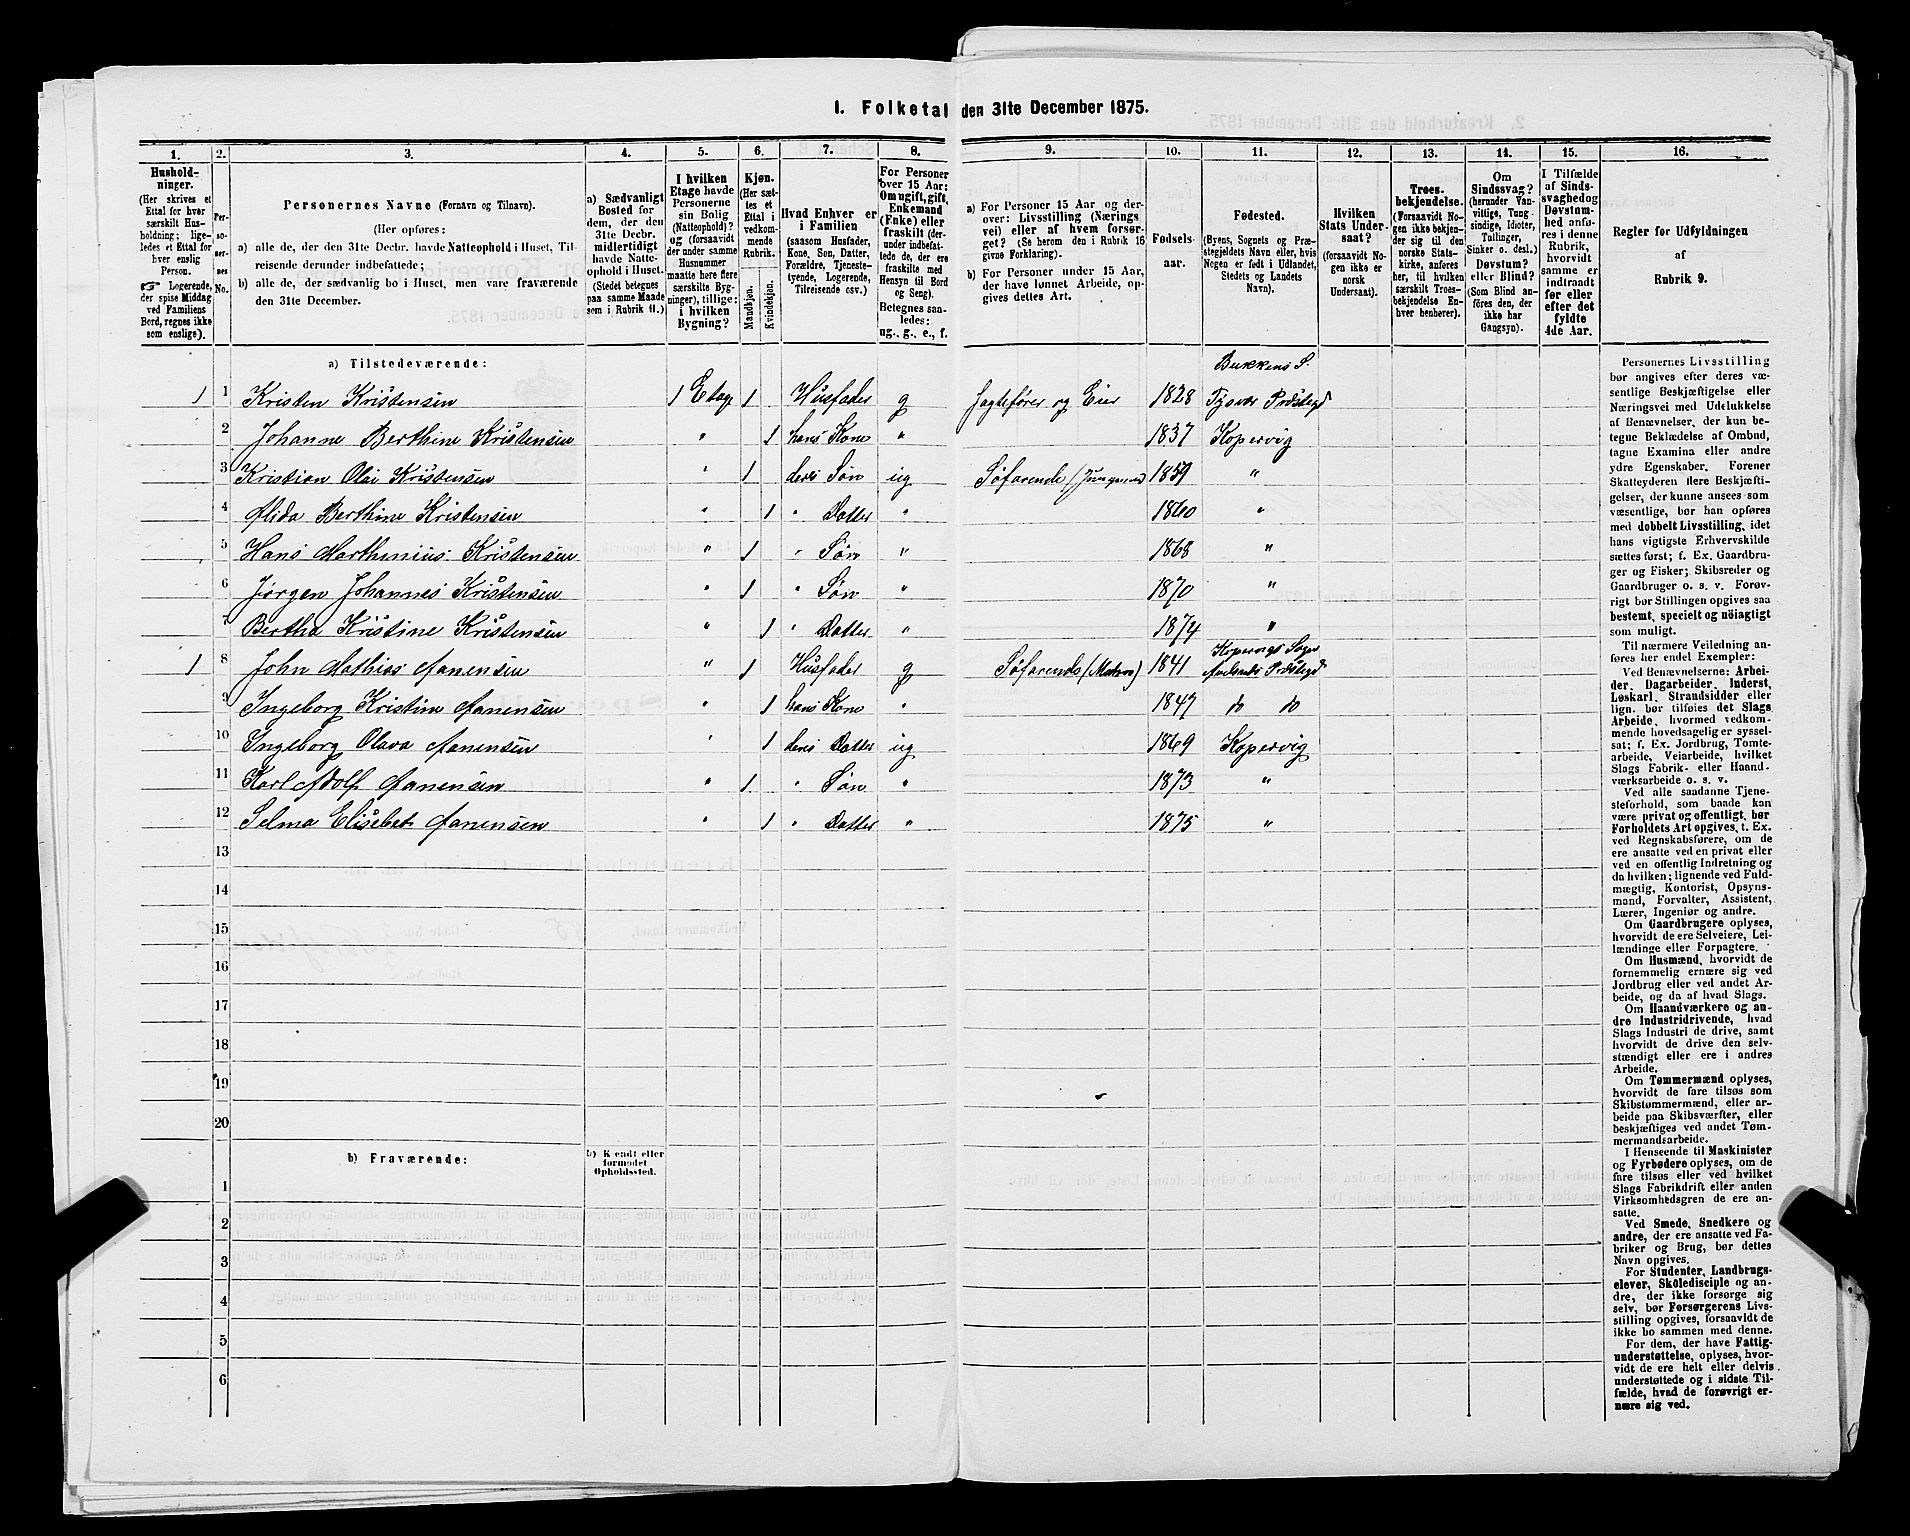 1. Folketal den 31te December 1875.
1. 2. 3. 4. 5. 6. 7. 8. 9. 10. 11. 12. 13. 14. 15. 16.
Hushold-
ninger.
(Her skrives et
Ettal for hver
særskilt Hus-
holdning; lige-
ledes et Ettal for
hver enslig
Person.
☞ Logerende,
der spise Middag
ved Familiens
Bord, regnes ikke
som enslige).
Per-
so-
ner-
nes
No.
Personernes Navne (Fornavn og Tilnavn).
(Her opføres:
a) alle de, der den 31te Decbr. havde Natteophold i Huset, Til-
reisende derunder indbefattede;
b) alle de, der sædvanlig bo i Huset, men vare fraværende
den 31te December.
a) Sædvanligt
Bosted for
dem, der den
31te Decbr.
midlertidigt
havde Natte-
ophold i Huset.
(Stedet betegnes
paa samme Maade
som i Rubrik 11.)
I hvilken
Etage havde
Personerne
sin Bolig
(Natteophold)?
og (forsaavidt
der under samme
Husnummer
maatte høre flere
særskilte Byg-
ninger), tillige:
i hvilken
Bygning?
Kjøn.
(Her sæt-
tes et
Ettal i
vedkom-
mende
Rubrik.
Mandkjøn.
Kvindekjøn.
Hvad Enhver er
i Familien
(saasom Husfader,
Kone, Søn, Datter,
Forældre, Tjeneste-
tyende, Logerende,
Tilreisende osv.)
For Personer
over 15 Aar:
Om ugift, gift,
Enkemand
(Enke) eller
fraskilt (der-
under indbefat-
tede de, der ere
fraskilte med
Hensyn til Bord
og Seng).
Betegnes saa-
ledes:
ug., g., e., f.
a) For Personer 15 Aar og der-
over: Livsstilling (Nærings
vei) eller af hvem forsør-
get? (Se herom den i Rubrik 16
givne Forklaring).
b) For Personer under 15 Aar,
der have lønnet Arbeide, op-
gives dettes Art.
Fødsels-
aar.
Fødested.
(Byens, Sognets og Præ-
stegjeldets Navn, eller hvis
Nogen er født i Udlandet,
Stedets og Landets
Navn).
Hvilken
Stats Under-
saat?
(forsaavidt No-
gen ikke er
norsk
Undersaat).
Troes-
bekjendelse.
(Forsaavidt No-
gen ikke bekjen-
der sig til den
norske Stats-
kirke, anføres
her, til hvilken
særskilt Troes-
bekjendelse En-
hver benhører).
Om
Sindssvag?
(herunder Van-
vittige, Tung-
sindige, Idioter,
Tullinger,
Sinker o. desl.)
Døvstum?
eller Blind?
(Som Blind an-
føres den, der
ikke har
Gangsyn).
I Tilfælde
af Sinds-
svaghed og
Døvstum-
hed anfø-
res i denne
Rubrik,
hvorvidt
samme er
indtraadt
før eller
efter det
fyldte
4de Aar.
Regler for Udfyldningen
af
Rubrik 9.
a) Tilstedeværende:
Bukkens S.
1 1 Kristen Kristensen 1 Etag 1 Husfader g Jagtefører og Eier 1828 Tysvær Præstegd
2 Johanne Berthine Kristensen " 1 hans Kone " 1837 Kopervig
3 Kristian Olai Kristensen " 1 deres Søn ug Søfarende (Jungmand) 1859 "
4 Alida Berthine Kristensen " 1 " Datter " 1860 "
5 Hans Marthinius Kristensen " 1 " Søn " 1868 "
6 Jørgen Johannes Kristensen " 1 " Søn " 1870 "
7 Bertha Kristine Kristensen " 1 " Datter " 1874 "
Kopervigs Sogn
1 8 John Mathias Aanensen " 1 Husfader g Søfarende (Matros) 1841 Præstegd
9 Ingeborg Kristine Aanensen " 1 hans Kone " 1847 do do
10 Ingeborg Olava Aanensen " 1 deres Datter ug 1869 Kopervig
11 Karl Adolf Aanensen " 1 " Søn " 1873 "
12 Selma Elisebet Aanensen " 1 " Datter " 1875 "
13
14
15
16
17
18
19
20
b) Fraværende:
b) Kjendt eller
formodet
Opholdssted.
1
2
3
4
5
6
Personernes Livsstilling
bør angives efter deres væ-
sentlige Beskjæftigelse eller
Næringsvei med Udelukkelse
af Benævnelser, der kun be-
tegne Beklædelse af Ombud,
tagne Examina eller andre
ydre Egenskaber. Forener
Skatteyderen flere Beskjæfti-
gelser, der kunne ansees som
væsentlige, bør han opføres
med dobbelt Livsstilling, idet
hans vigtigste Erhvervskilde
sættes først; f. Ex. Gaardbru-
ger og Fisker; Skibsreder og
Gaardbruger o. s. v. Forøv-
rigt bør Stillingen opgives saa
bestemt, specielt og nöiagtigt
som muligt.
Til nærmere Veiledning an-
føres her endel Exempler:
Ved Benævnelserne: Arbei-
der, Dagarbeider, Inderst,
Løskarl, Strandsidder eller
lign. bør tilføies det Slags
Arbeide, hvormed vedkom-
mende hovedsagelig er syssel-
sat; f. Ex. Jordbrug, Tomte-
arbeide, Veiarbeide, hvilket
Slags Fabrik- eller Haand-
værksarbeide o. s. v.
Ved alle saadanne Tjene-
steforhold, som baade kan
være privat og offentligt, bør
Forholdets Art opgives, t. Ex.
ved Regnskabsførere, om de
ere ansatte ved en privat eller
ved en offentlig Indretning og
da hvilken; lignende ved Fuld-
mægtig, Kontorist, Opsyns-
mand, Forvalter, Assistent,
Lærer, Ingeniør og andre.
Om Gaardbrugere oplyses,
hvorvidt de ere Selveiere, Lei-
lændinge eller Forpagtere.
Om Husmænd, hvorvidt de
fornemmelig ernære sig ved
Jordbrug eller ved andet Ar-
beide, og da af hvad Slags.
Om Haandværkere og an-
dre Industridrivende, hvad
Slags Industri de drive, samt
hvorvidt de drive den selv-
stændigt eller ere i andres
Arbeide.
Om Tømmermænd oplyses,
hvorvidt de fare tilsøs som
Skibstømmermænd, eller ar-
beide paa Skibsværfter, eller
beskjæftiges ved andet Tøm-
mermandsarbeide.
I Henseende til Maskinister
og Fyrbødere oplyses, om de
fare tilsøs eller ved hvilket
Slags Fabrikdrift eller anden
Virksomhedsgren de ere an-
satte.
Ved Smede, Snedkere og
andre, der ere ansatte ved Fa-
briker og Brug, bør dettes
Navn opgives.
For Studenter, Landbrugs-
elever, Skoledisciple og an-
dre, der ikke forsørge sig
selv, bør Forsørgerens Livs-
stilling opgives, forsaavidt de
ikke bo sammen med denne.
For dem, der have Fattig-
understøttelse, oplyses, hvor-
vidt de ere helt eller delvis
understøttede og i sidste Til-
fælde, hvad de forøvrigt er-
nære sig ved.